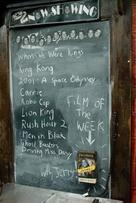 NOW SHOWING
When We Were Kings
King Kong
2001 - A Space Odyssey
Carrie
Robo Cop
Lion King
Rush Hour 2
Men in Black
Ghost Busters
Driving Miss Daisy
FILM OF
THE
WEEK
with Jerry